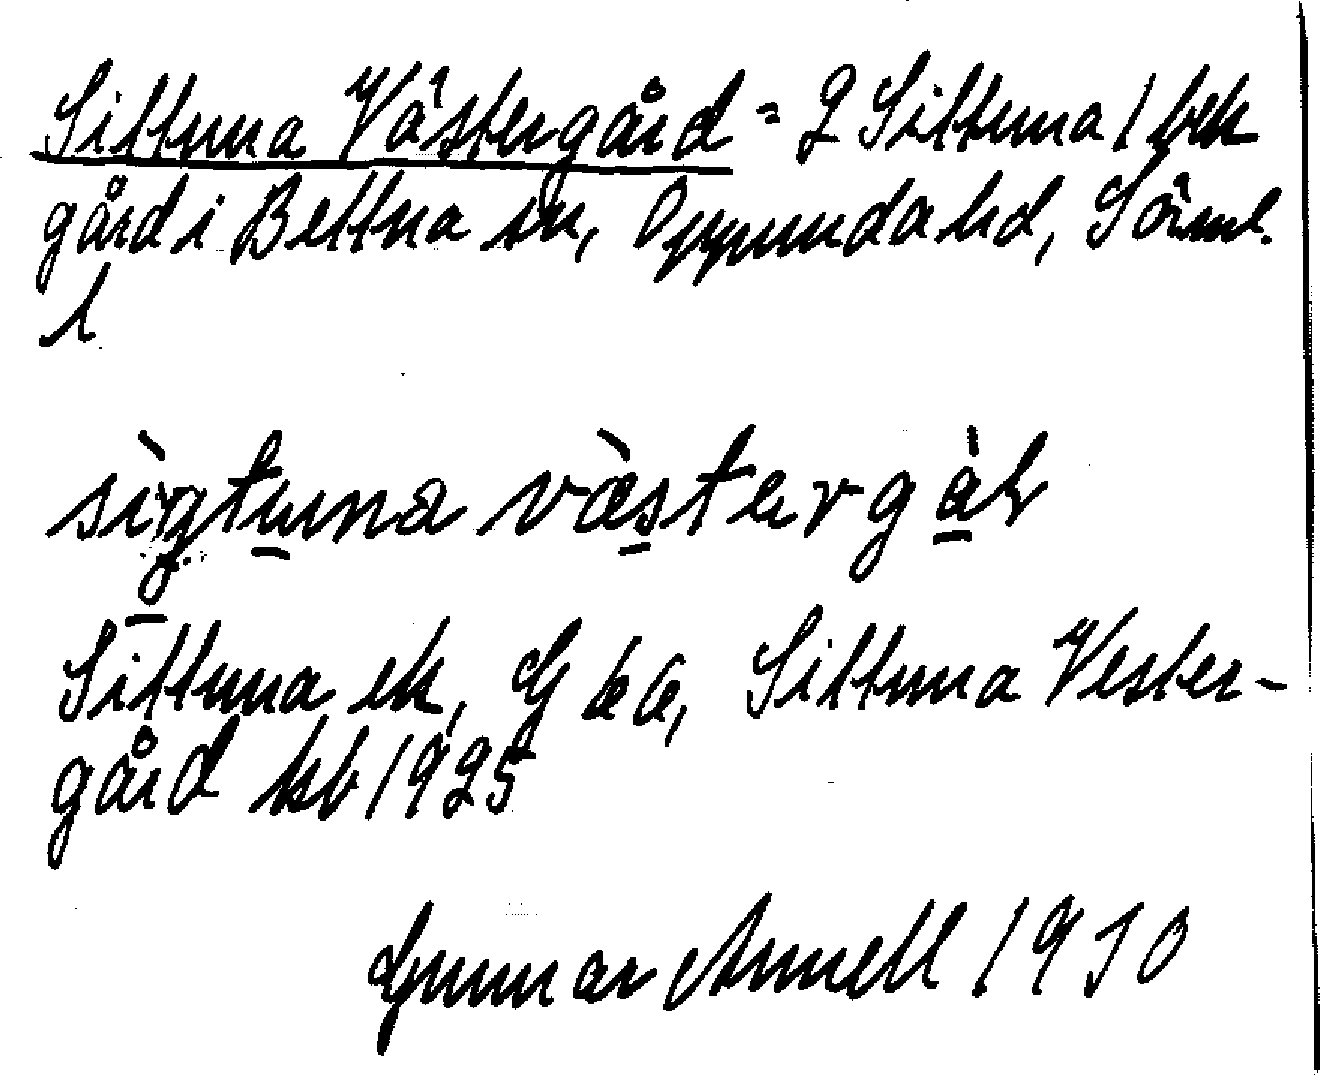 Sittuna Västergård = 2 Sittuna 1 bek
gård i Bettna sn, Oppunda hd, Söml.
l
sìgtuna vàstergàh
Sittuna ek, G kk, Sittuna Vester-
gård kb 1925
Gunnar Annell 1930